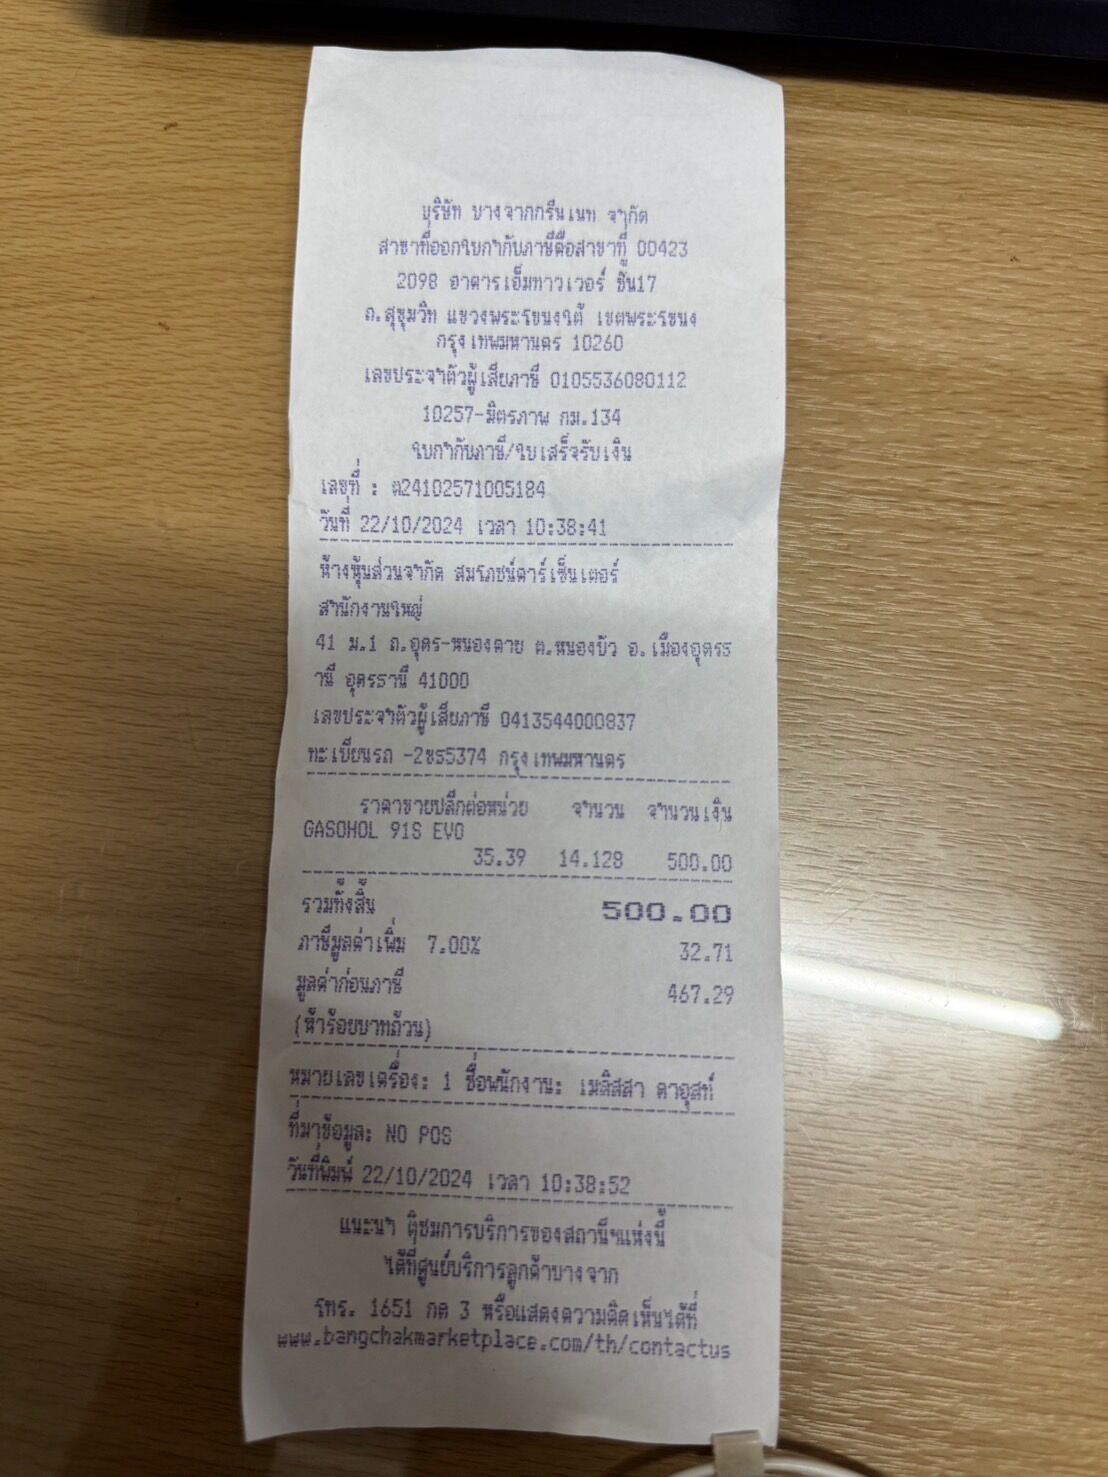 บริษัท บางจากกรีนเนท จำกัด
สาขาที่ออกใบกำกับภาษีคือสาขาที่ 00423
2098 อาคารเอ็มทาวเวอร์ ชั้น17
ถ.สุขุมวิท แขวงพระโขนงใต้ เขตพระโขนง
กรุงเทพมหานคร 10260
เลขประจำตัวผู้เสียภาษี 0105536080112
10257-มิตรภาพ กม.134
ใบกำกับภาษี/ใบเสร็จรับเงิน
เลขที่ : ต24102571005184
วันที่ 22/10/2024 เวลา 10:38:41
ห้างหุ้นส่วนจำกัด สมโภชน์คาร์เซ็นเตอร์
สำนักงานใหญ่
41 ม.1 ถ.อุดร-หนองคาย ต.หนองบัว อ.เมืองอุดรธ
านี อุดรธานี 41000
เลขประจำตัวผู้เสียภาษี 0413544000837
ทะเบียนรถ -2ขธ5374 กรุงเทพมหานคร
ราคาขายปลีกต่อหน่วย จำนวน จำนวนเงิน
GASOHOL 91S EVO
35.39 14.128 500.00
รวมทั้งสิ้น 500.00
ภาษีมูลค่าเพิ่ม 7.00% 32.71
มูลค่าก่อนภาษี 467.29
(ห้าร้อยบาทถ้วน)
หมายเลขเครื่อง: 1 ชื่อพนักงาน: เมลิสสา ดาอุสท์
ที่มาข้อมูล: NO POS
วันที่พิมพ์ 22/10/2024 เวลา 10:38:52
แนะนำ ติชมการบริการของสถานีฯแห่งนี้
ได้ที่ศูนย์บริการลูกค้าบางจาก
โทร. 1651 กด 3 หรือแสดงความคิดเห็นได้ที่
www.bangchakmarketplace.com/th/contactus